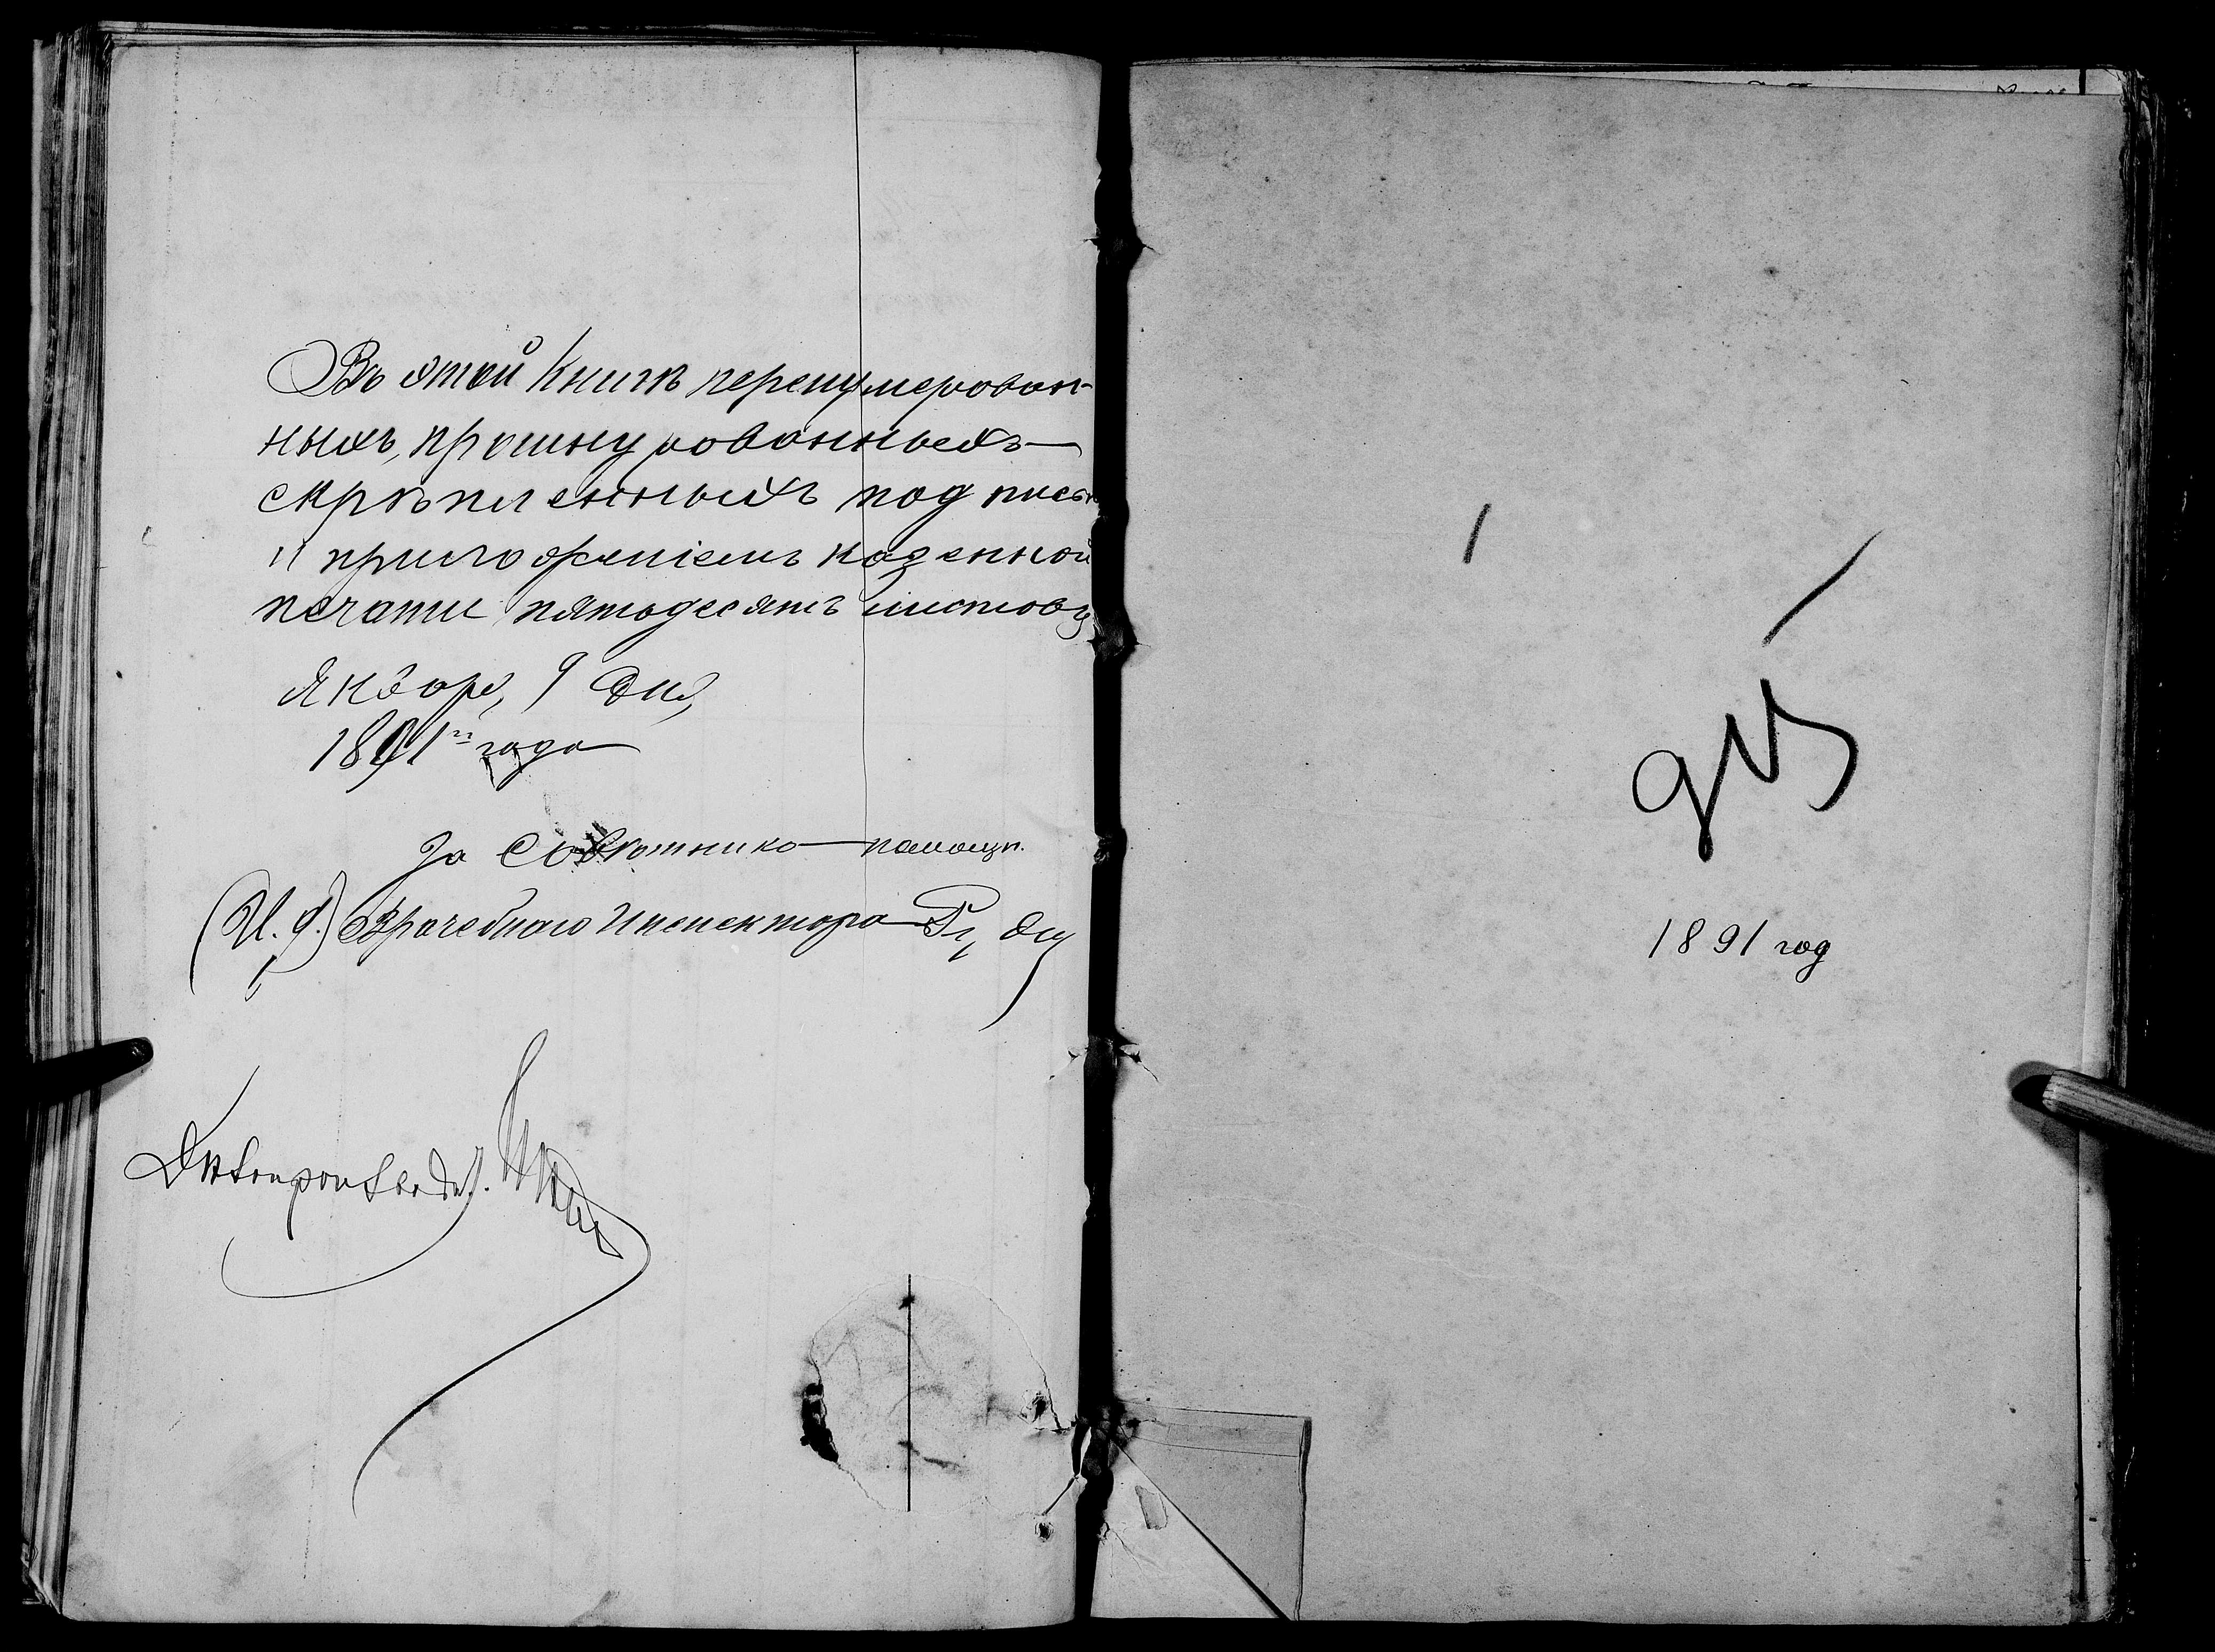 Въ этой Книгѣ перенумерован-
ныхъ, прошнурованныхъ
скрѣпленныхъ подпись
и приложеніемъ казенной
печати пятьдесятъ листовъ
Январ, 9 дня,
1891 года
За Совѣтника помощн.
(И. ф.) Врачебнаго Инспектора
1891 год